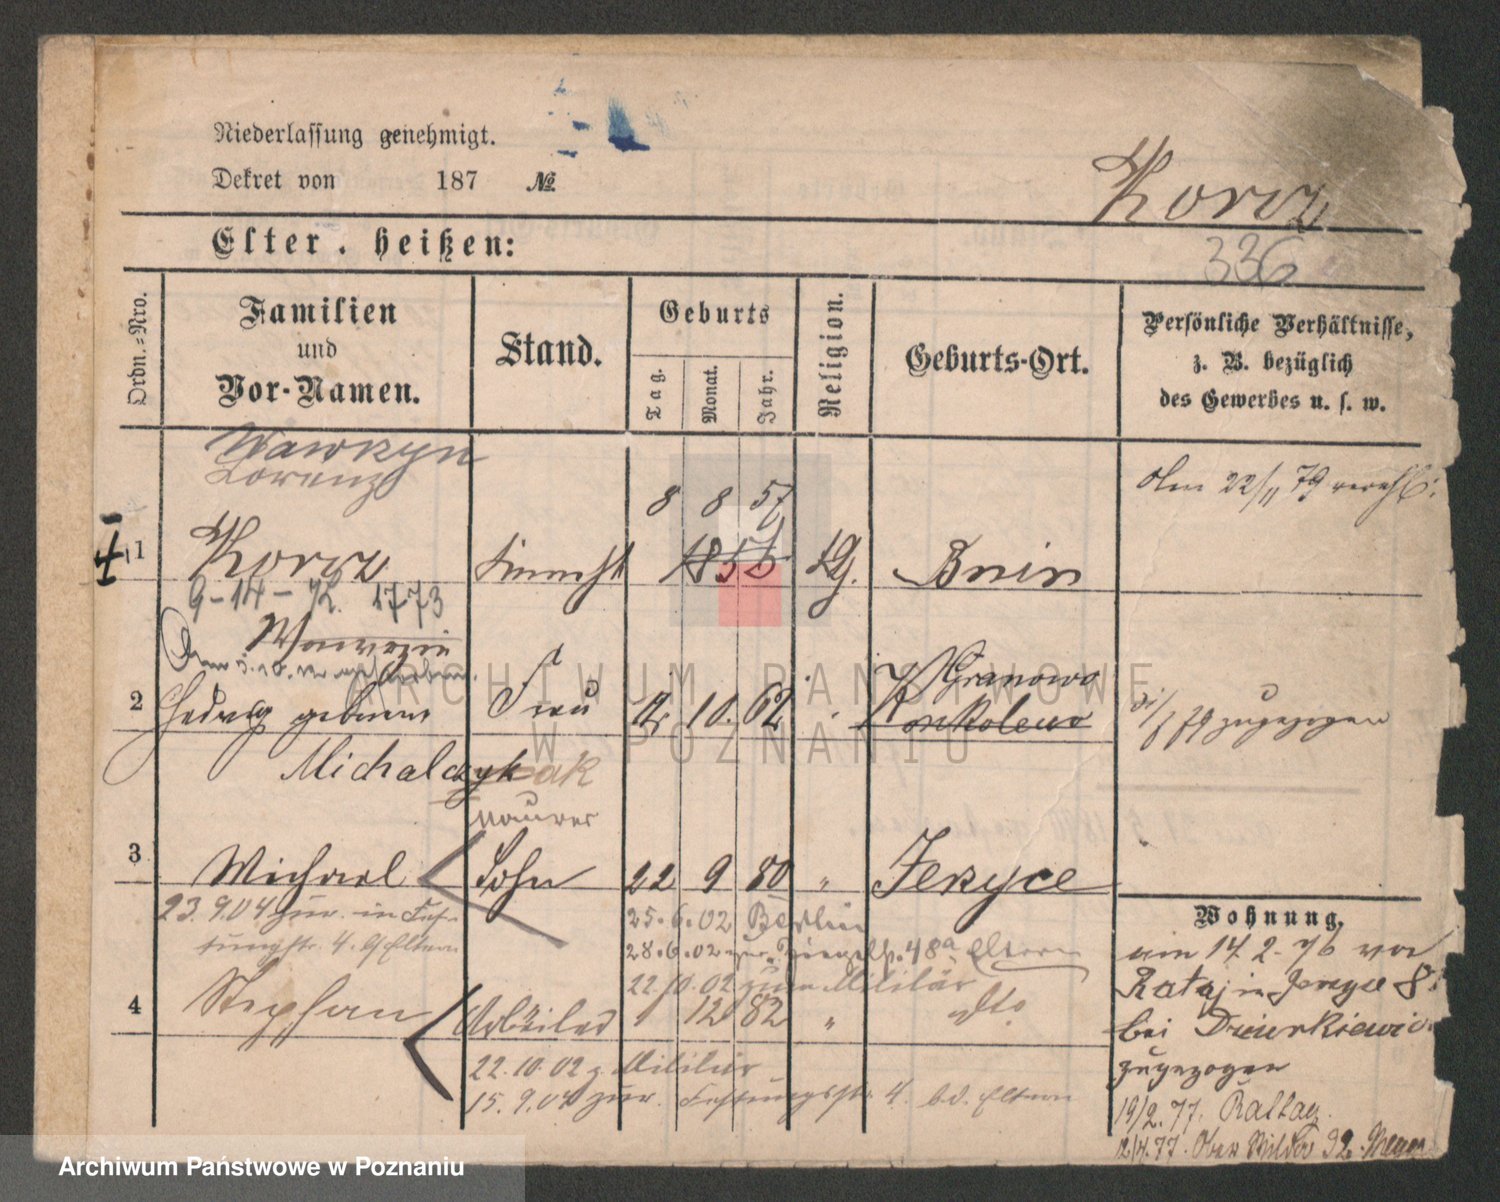 Niederlassung genehmigt.
Dekret von 187 №
Korcz
Elter . heißen:
336
Ordn.=Nro.
Familien
und
Vor-Namen.
Stand.
Geburts
Tag.
Monat.
Jahr.
Religion.
Geburts-Ort.
Persönliche Verhältnisse,
z. B. bezüglich
des Gewerbes u. s. w.
Wawrzyn
Lorenz
8 8 57
Am 22/11 79 verehl.
1 Korcz Knecht 1855 kg. Bnin
9-14-72. 1773
Wawrzin
Granowo
2 Hedwig geborene Frau 12. 10. 62 Konkolewo
79 zugezogen
Michalczykak
Maurer
3 Michael Sohn 22 9 80 " Jerzyce
23.9.04 zur. in Fes-
tungstr. 4. a/Eltern
25.6.02 Berlin
28.6.02 zur. 48a Eltern
22.10.02 zum Militär
Wohnung,
am 14 2. 76 von
Rataj in Jerzyce 8.
bei
zugezogen
4 Stephan Arbeiter 1 12 82 " dto
22.10.02 z. Militär
15.9.04 zur. Festungsstr. 4. b.d. Eltern
19/2. 77. Rattay.
12/4.77. Ober Wilda 92.
ARCHIWUM PAŃSTWOWE
W POZNANIU
Archiwum Państwowe w Poznaniu